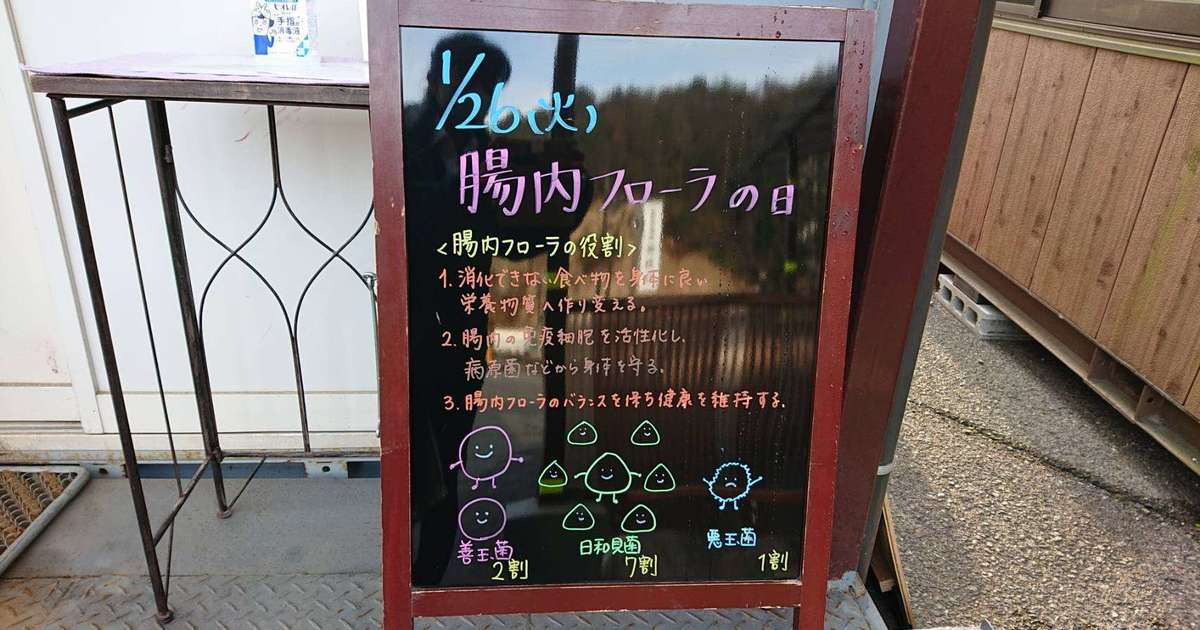 手指
消毒液
1/26(火)
腸内フローラの日
<腸内フローラの役割>
1.消化できない食べ物を身体に良い
栄養物質へ作り変える。
2.腸内の免疫細胞を活性化し、
病原菌などから身体を守る。
3.腸内フローラのバランスを保ち健康を維持する。
善玉菌
2割
日和見菌
7割
悪玉菌
1割